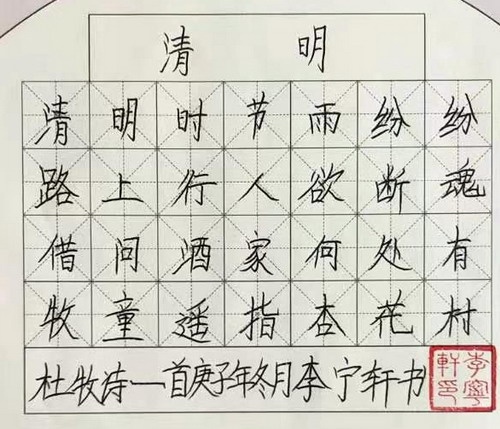 清明
清明时节雨纷纷
路上行人欲断魂
借问酒家何处有
牧童遥指杏花村
杜牧诗一首庚子年冬月李宁轩书
李寧軒印